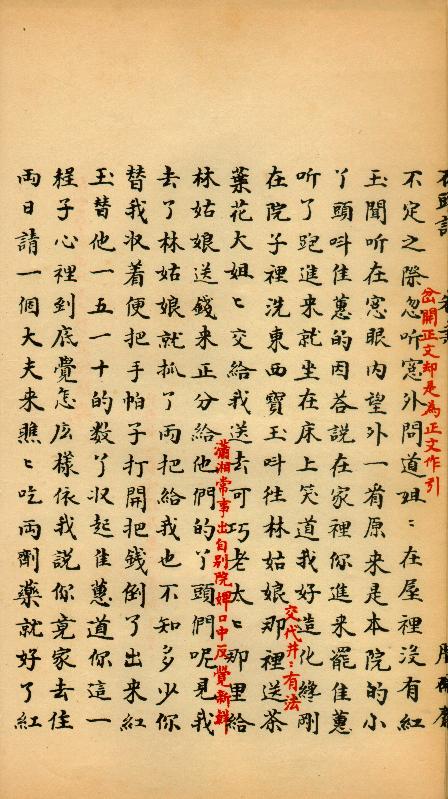 不定之際忽听窓外問道姐〻在屋裡沒有紅
岔開正文却是為正文作引
玉聞听在窓眼内望外一看原来是本院的小
丫頭呌佳蕙的因答説在家裡你進来罷佳蕙
听了跑進来就坐在床上笑道我好造化纔剛
交代井〻有法
在院子裡洗東西寶玉呌徃林姑娘那裡送茶
葉花大姐〻交給我送去可巧老太〻那里給
瀟湘常事出自別院婢口中反覺新鮮
林姑娘送錢来正分給他們的丫頭們呢見我
去了林姑娘就抓了両把給我也不知多少你
替我收着便把手帕子打開把錢倒了出来紅
玉替他一五一十的数了收起佳蕙道你這一
程子心裡到底覺怎庅樣依我説你竟家去住
両日請一個大夫来瞧〻吃両劑藥就好了紅